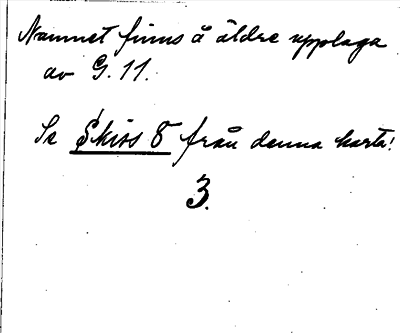 Namnet finns å äldre upplaga
av G. 11.
Se Skiss 8 från denna karta!
3.